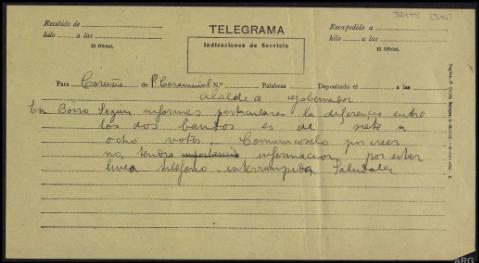 TELEGRAMA
Recibido de
hilo a las
El Oficial,
Indicaciones de Servicio
Reexpedido a
hilo a las
El Oficial,
Para Coruña de P. Caramiñal N.º Palabras Depositado el a las
alcalde a gobernador
En Boiro Segun informes particulares la diferencia entre
los dos bandos es de siete a
ocho votos. Comunicoselo por creer
no tendra importancia informacion por estar
linea telefono interrumpida Saludale
ARG